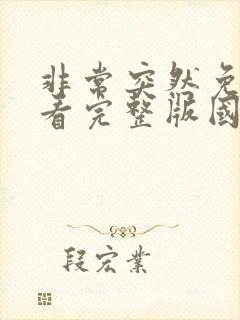 非常突然免
看完整版國
段宏業